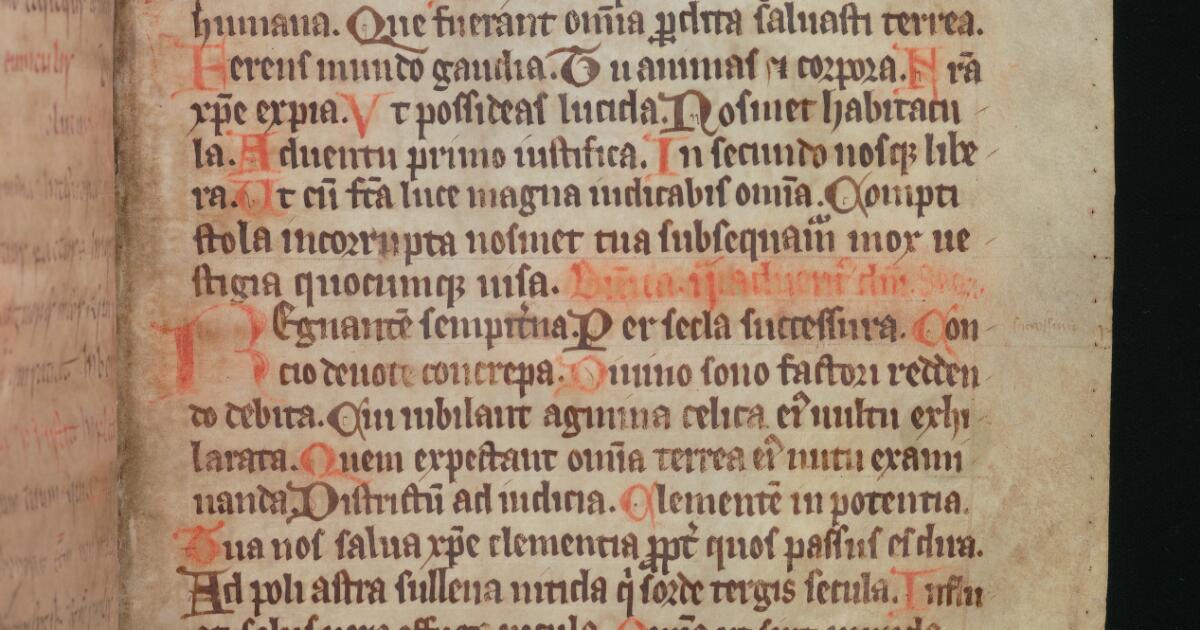 humana. Que fuerant om̅ia ꝑdita saluasti terrea.
Ferens mundo gaudia. Tu animas ⁊ corpora. Nr̅a
xp̅e expia. Vt possideas lucida. Nosmet habitacu
la. Aduentu primo iustifica. In secundo nosqꝫ libe
ra. Ut cu̅ fc̅a luce magna iudicabis om̅ia. Compti
stola incorrupta nosmet tua subsequam̅ mox ue
stigia quocumqꝫ uisa. Dn̅ica ij aduent᷒ dn̅i
REgnante̅ sempit̓na. Per secla successura. Con
cio deuote concrepa. Diuino sono factori redden
do debita. Qui iubilant agmina celica ei᷒ uultu exhi
larata. Quem expectant om̅ia terrea ei᷒ nutu exami
nanda. Districtu̅ ad iudicia. Clemente̅ in potentia.
Tua nos salua xp̅e clementia ꝓpt̓ quos passus es dira.
Ad poli astra subleua nitida qͥ sorde tergis secula. Influ